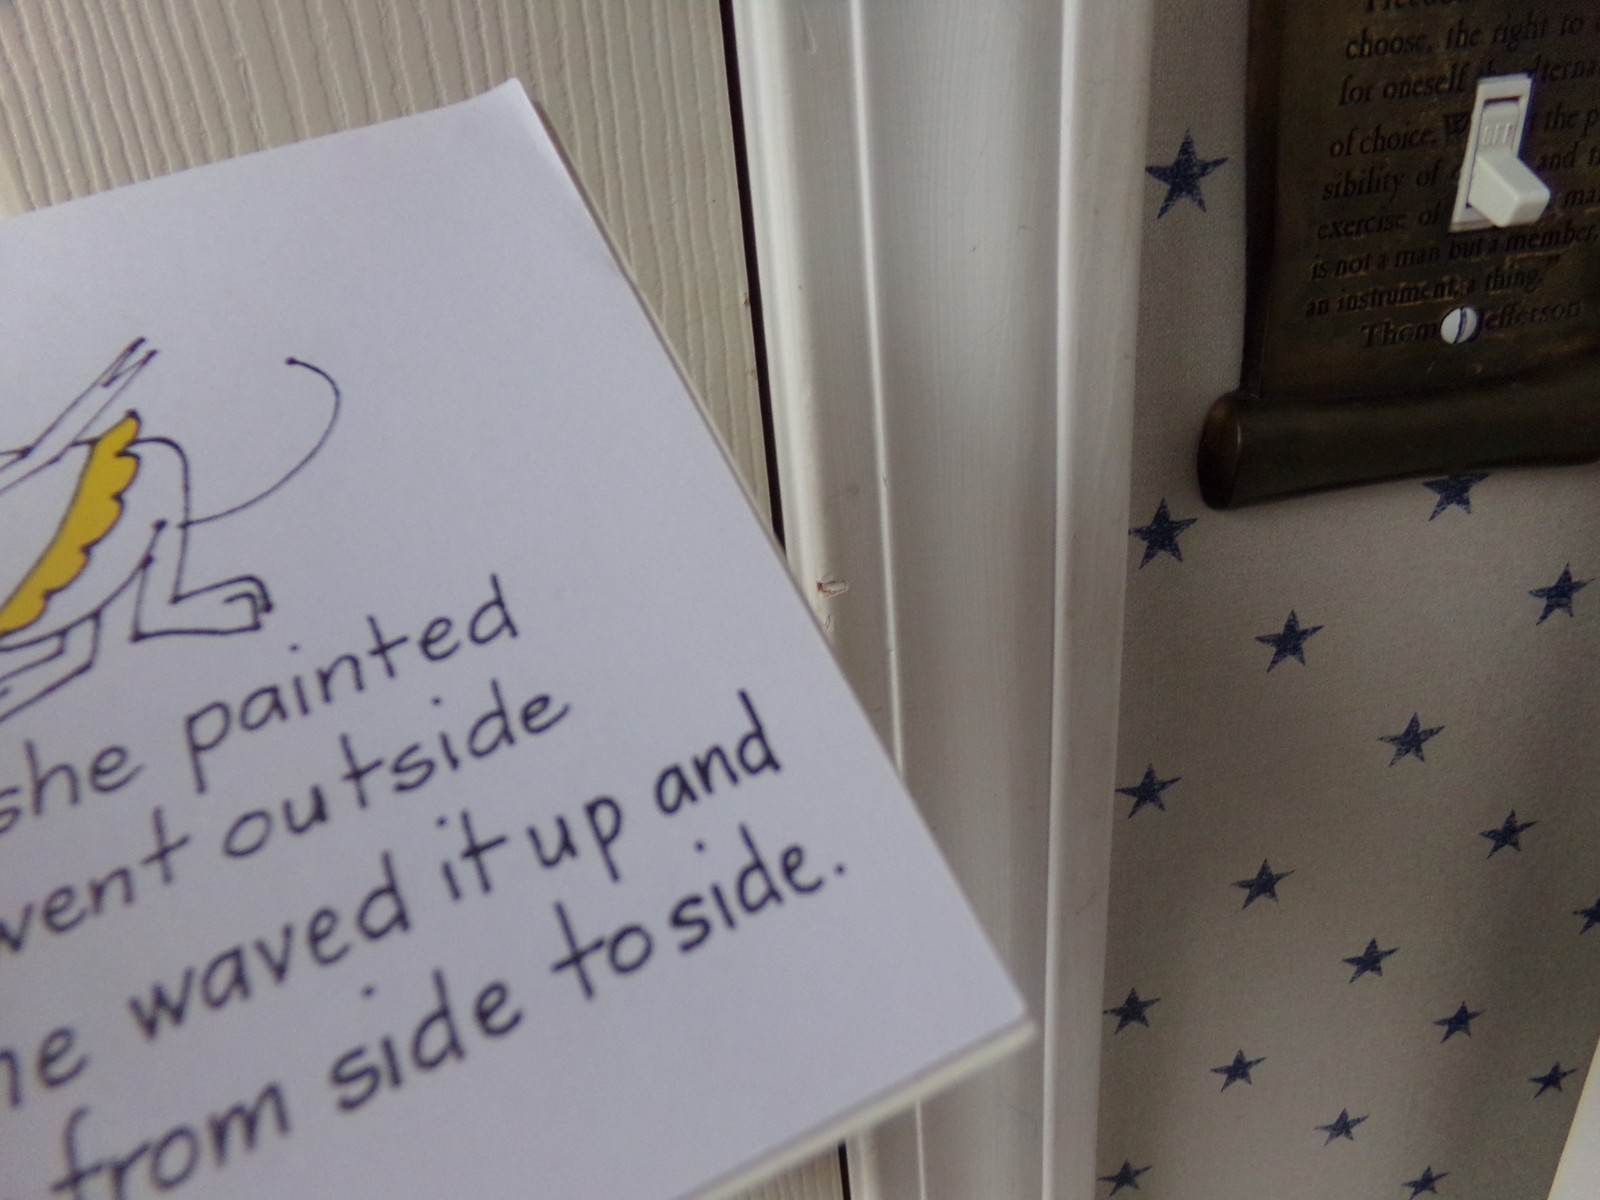 she painted
went outside
he waved it up and
from side to side.
choose, the right to
for oneself
of choice. the
sibility of and
exercise of
is not a man but a member,
an instrument, a thing."
Thomas Jefferson